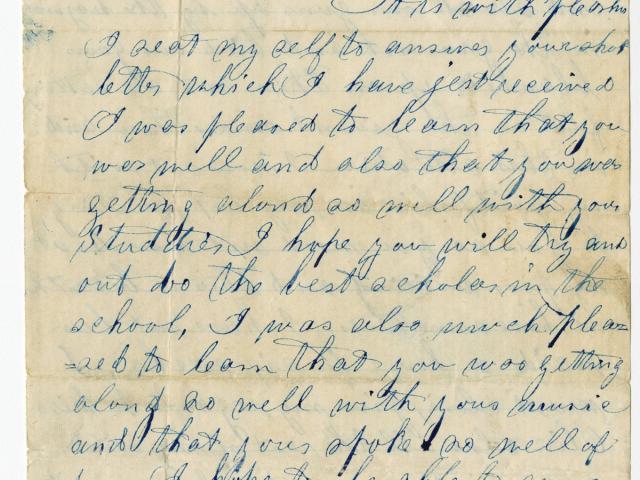 It is with pleasur
I seat my self to answer your shot
letter which I have jest received
I was pleased to learn that you
was well and also that you was
getting alond so well with your
Studties I hope you will try and
out do the best scholar in the
school, I was also much plea=
=sed to learn that you was getting
along so well with your music
and that you spoke so well of
I hope to be able to